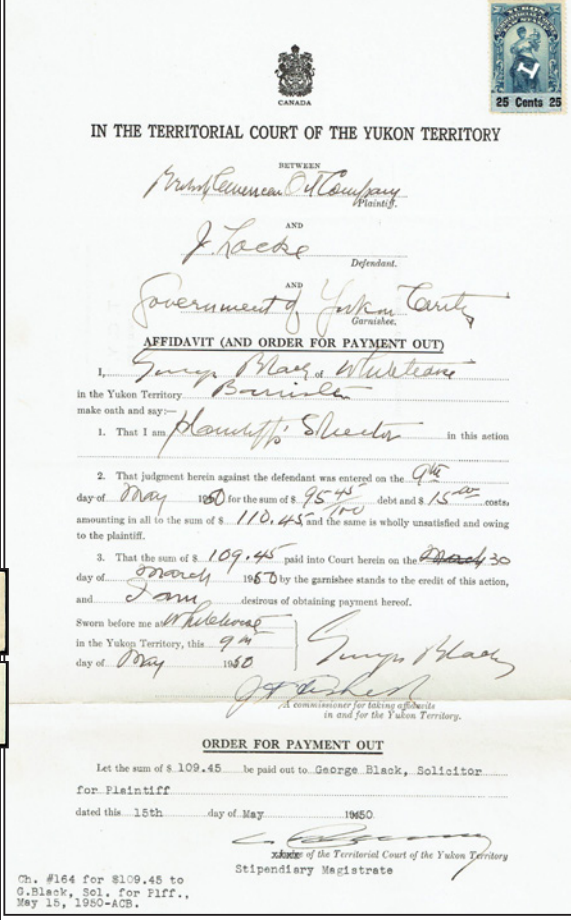 YUKON
LAW STAMP
L
25 Cents 25
CANADA
IN THE TERRITORIAL COURT OF THE YUKON TERRITORY
BETWEEN
British American Oil Company
Plaintiff.
AND
J. Locke
Defendant.
AND
Government of Yukon Territy
Garnishee.
AFFIDAVIT (AND ORDER FOR PAYMENT OUT)
I, George Black of Whitehorse
in the Yukon Territory Barrister
make oath and say:—
1. That I am plaintiff's Solicitor in this action
2. That judgment herein against the defendant was entered on the 9th
day of May 1950 for the sum of $ 95 45/100 debt and $ 15 00 costs,
amounting in all to the sum of $ 110.45 and the same is wholly unsatisfied and owing
to the plaintiff.
3. That the sum of $ 109.45 paid into Court herein on the March 30
day of March 1950 by the garnishee stands to the credit of this action,
and I am desirous of obtaining payment hereof.
Sworn before me at Whitehorse
in the Yukon Territory, this 9th
day of May 1950
George Black
A commissioner for taking affidavits
in and for the Yukon Territory.
ORDER FOR PAYMENT OUT
Let the sum of $ 109.45 be paid out to George Black, Solicitor
for Plaintiff
dated this 15th day of May 1950.
of the Territorial Court of the Yukon Territory
Stipendiary Magistrate
Ch. #164 for $109.45 to
G.Black, Sol. for Plff.,
May 15, 1950-ACB.